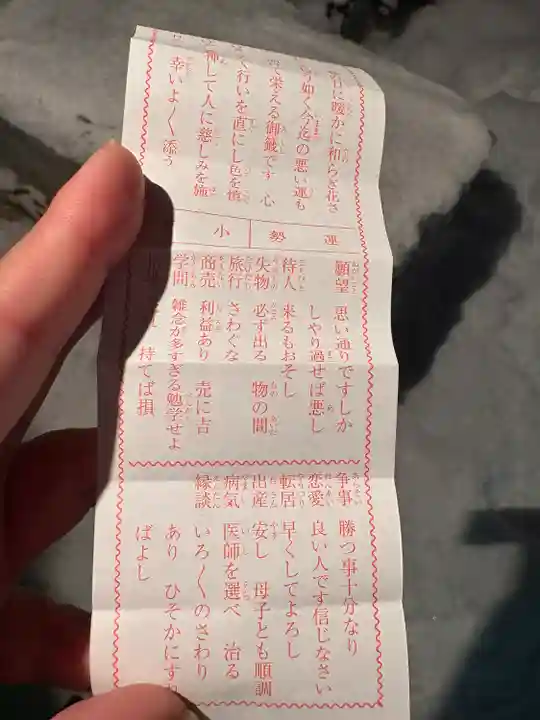 日に暖かに和らぎ花さ
如く今迄の悪い運も
て栄える御籤です 心
行いを直にし色を慎
神して人に慈しみを施
幸いよく〱添う
運勢 小
願望 思い通りですしか
しやり過せば悪し
待人 来るもおそし
失物 必ず出る 物の間
旅行 さわぐな
商売 利益あり 売に吉
学問 雑念が多すぎる勉学せよ
持てば損
争事 勝つ事十分なり
恋愛 良い人です信じなさい
転居 早くしてよろし
出産 安し 母子とも順調
病気 医師を選べ 治る
縁談 いろ〱のさわり
あり ひそかにすれ
ばよし